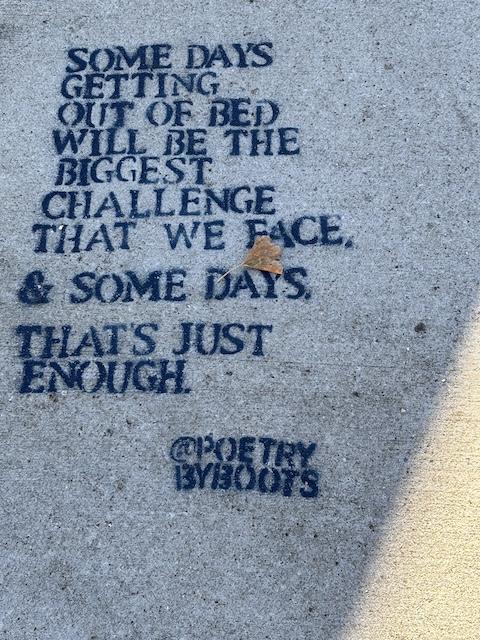 SOME DAYS
GETTING
OUT OF BED
WILL BE THE
BIGGEST
CHALLENGE
THAT WE FACE.
& SOME DAYS.
THAT'S JUST
ENOUGH.
@POETRY
BYBOOTS